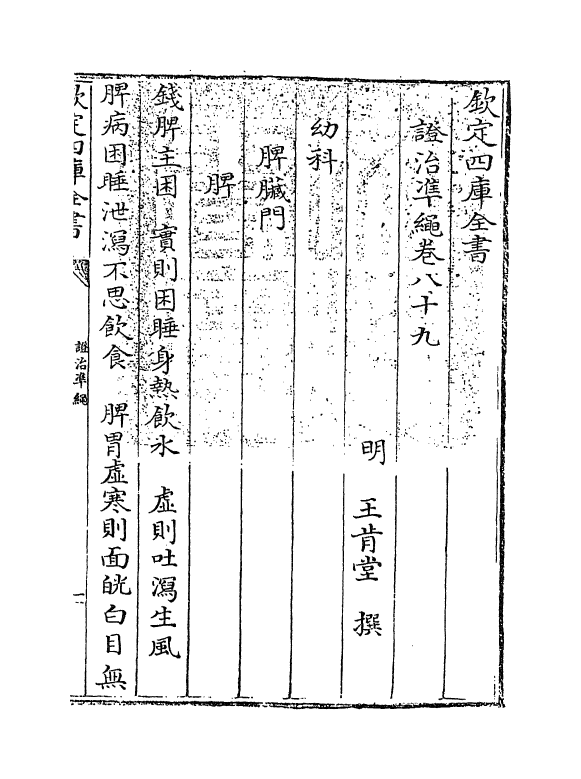 欽定四庫全書
證治準繩卷八十九
明　王肯堂　撰
幼科
脾臟門
脾
錢脾主困　實則困睡身熱飲水　虛則吐瀉生風
脾病困睡泄瀉不思飲食　脾胃虛寒則面㿠白目無
欽定四庫全書
證治準繩
一